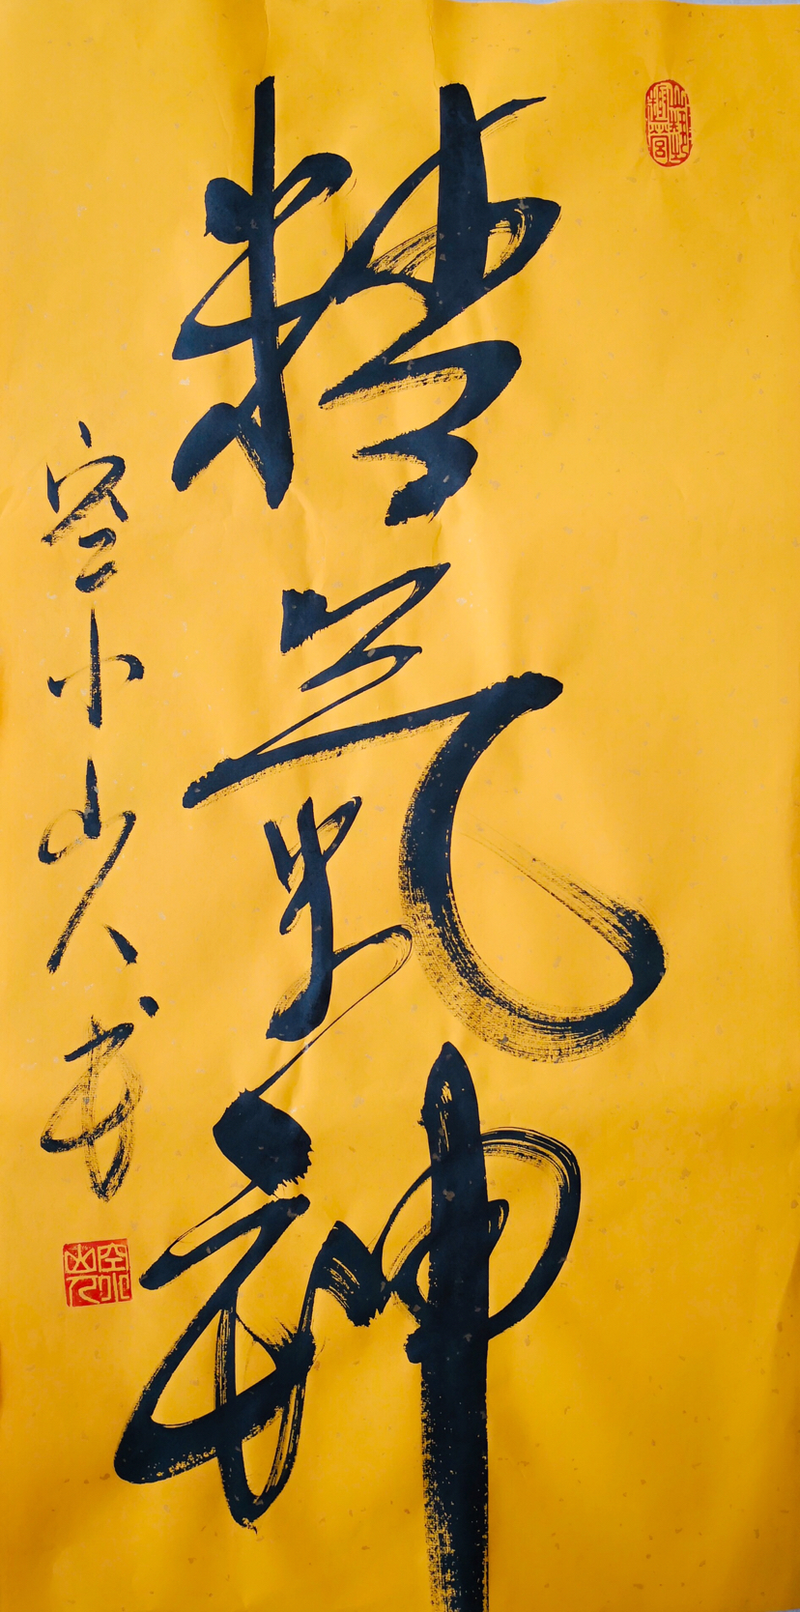 精氣神
空小山人书